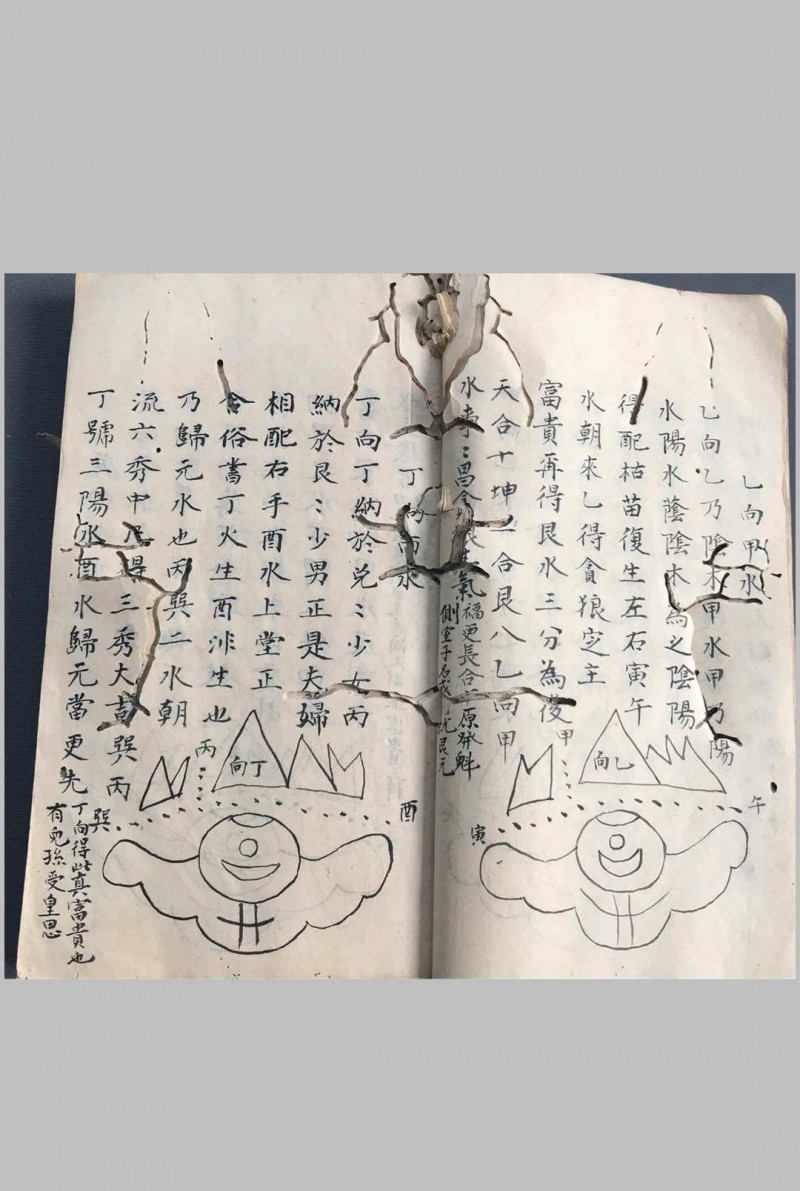 乙向甲水
乙向乙乃陰木甲水甲乃陽
水陽水蔭陰木為之陰陽
得配枯苗復生左右寅午
水朝來乙得貪狼定主
富貴再得艮水三分為後
天合十坤二合艮八乙向甲
水
氣福更長合
原發魁
側室子
元
丁向丙水
丁向丁納於兌：少女丙
納於艮：少男正是夫婦
相配右手酉水上堂正
合俗書丁火生酉非生也
乃歸元水也丙巽二水朝
流六秀中得三秀大吉巽丙
丁號三陽水酉水歸元當更先
丁向得此真富貴也
有兒孫受皇恩
乙向
甲
午
寅
丁向
丙
酉
巽